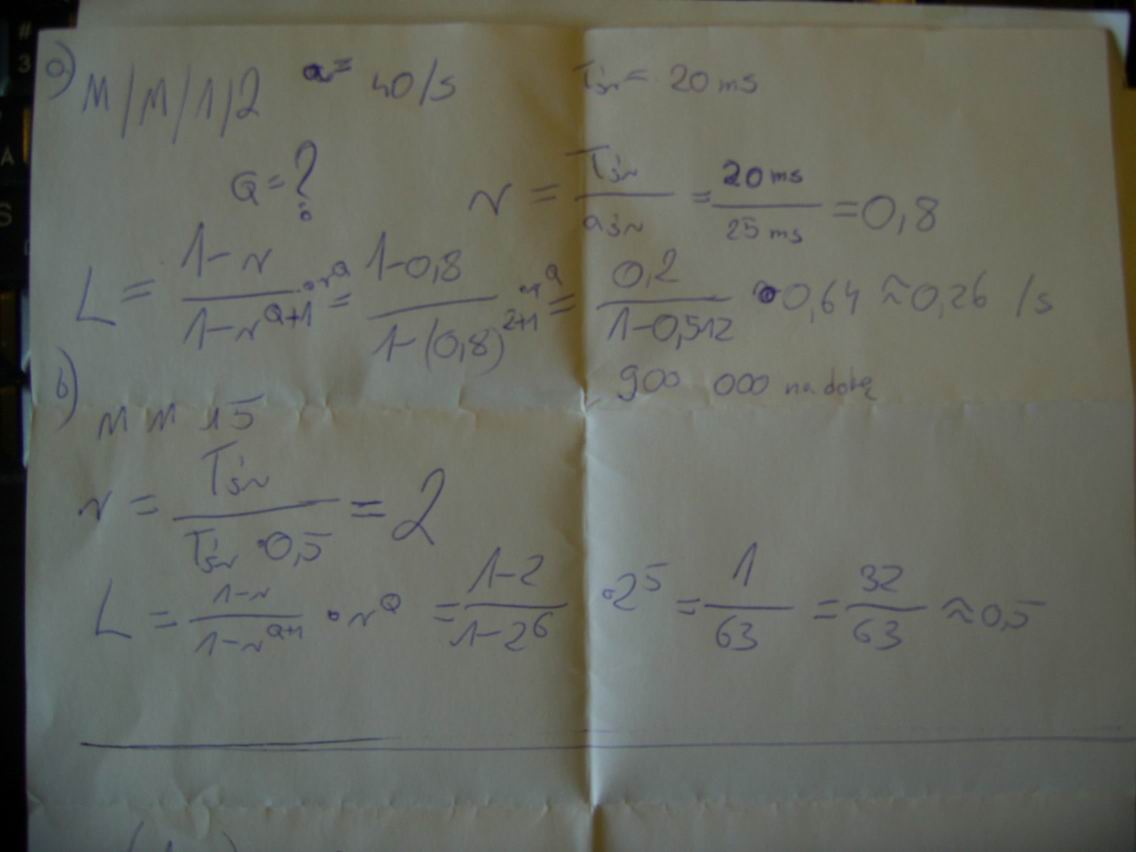 a) M/M/1/2 a = 40/s Tśr = 20 ms
Q = ? r = Tśr / aśr = 20 ms / 25 ms = 0,8
L = 1-r / 1-r^Q+1 · r^Q = 1-0,8 / 1-(0,8)^2+1 · r^Q = 0,2 / 1-0,512 · 0,64 ≈ 0,26 /s
900 000 na dobę
b) M M 1 5
r = Tśr / Tśr · 0,5 = 2
L = 1-r / 1-r^Q+1 · r^Q = 1-2 / 1-2^6 · 2^5 = 1 / 63 = 32 / 63 ≈ 0,5